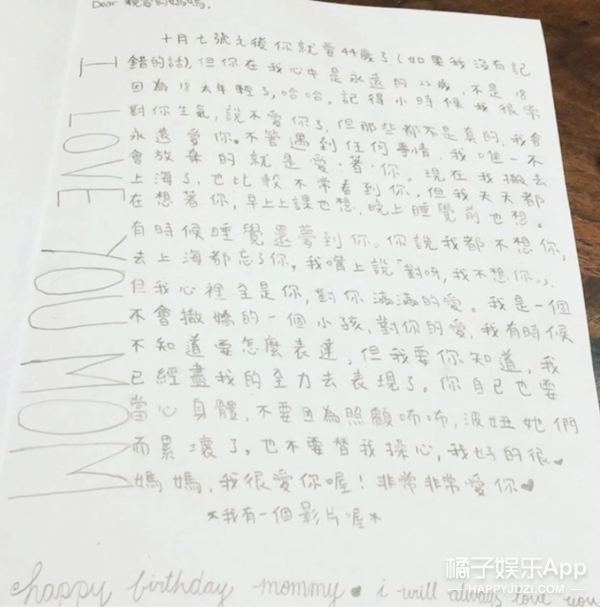 Dear 親愛的媽媽,
十月七號之後你就要44歲了(如果我沒有記
錯的話),但你在我心中是永遠的22歲,不是18
因為18太年輕了,哈哈。記得小時候我很常
對你生氣,說不愛你了,但那些都不是真的,我會
永遠愛你。不管遇到任何事情,我唯一不
會放棄的就是愛·著·你。現在我搬去
上海了,也比較不常看到你,但我天天都
在想著你,早上上課也想,晚上睡覺前也想。
有時候睡覺還夢到你。你說我都不想你,
去上海都忘了你。我嘴上說「對呀,我不想你。」
但我心裡全是你,對你滿滿的愛。我是一個
不會撒嬌的一個小孩,對你的愛,我有時候
不知道要怎麼表達,但我要你知道,我
已經盡我的全力去表現了。你自己也要
當心身體,不要因為照顧咘咘,波妞她們
而累壞了。也不要替我操心,我好的很♥
媽媽,我很愛你喔!非常非常愛你♥
*我有一個影片喔*
I LOVE YOU MOM
happy birthday mommy♥ i will always love you
橘子娱乐App
HAPPYJUZI.COM